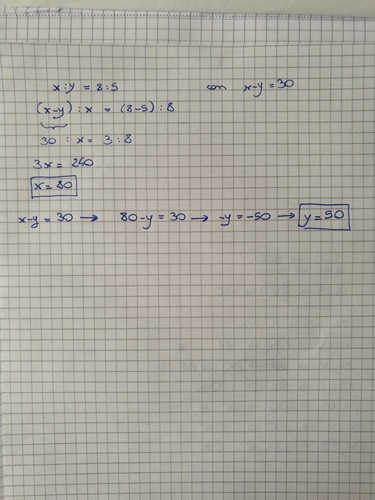 x:y = 8:5 con x-y=30
(x-y) : x = (8-5) : 8
30 : x = 3 : 8
3x = 240
x = 80
x-y = 30 → 80-y = 30 → -y = -50 → y = 50